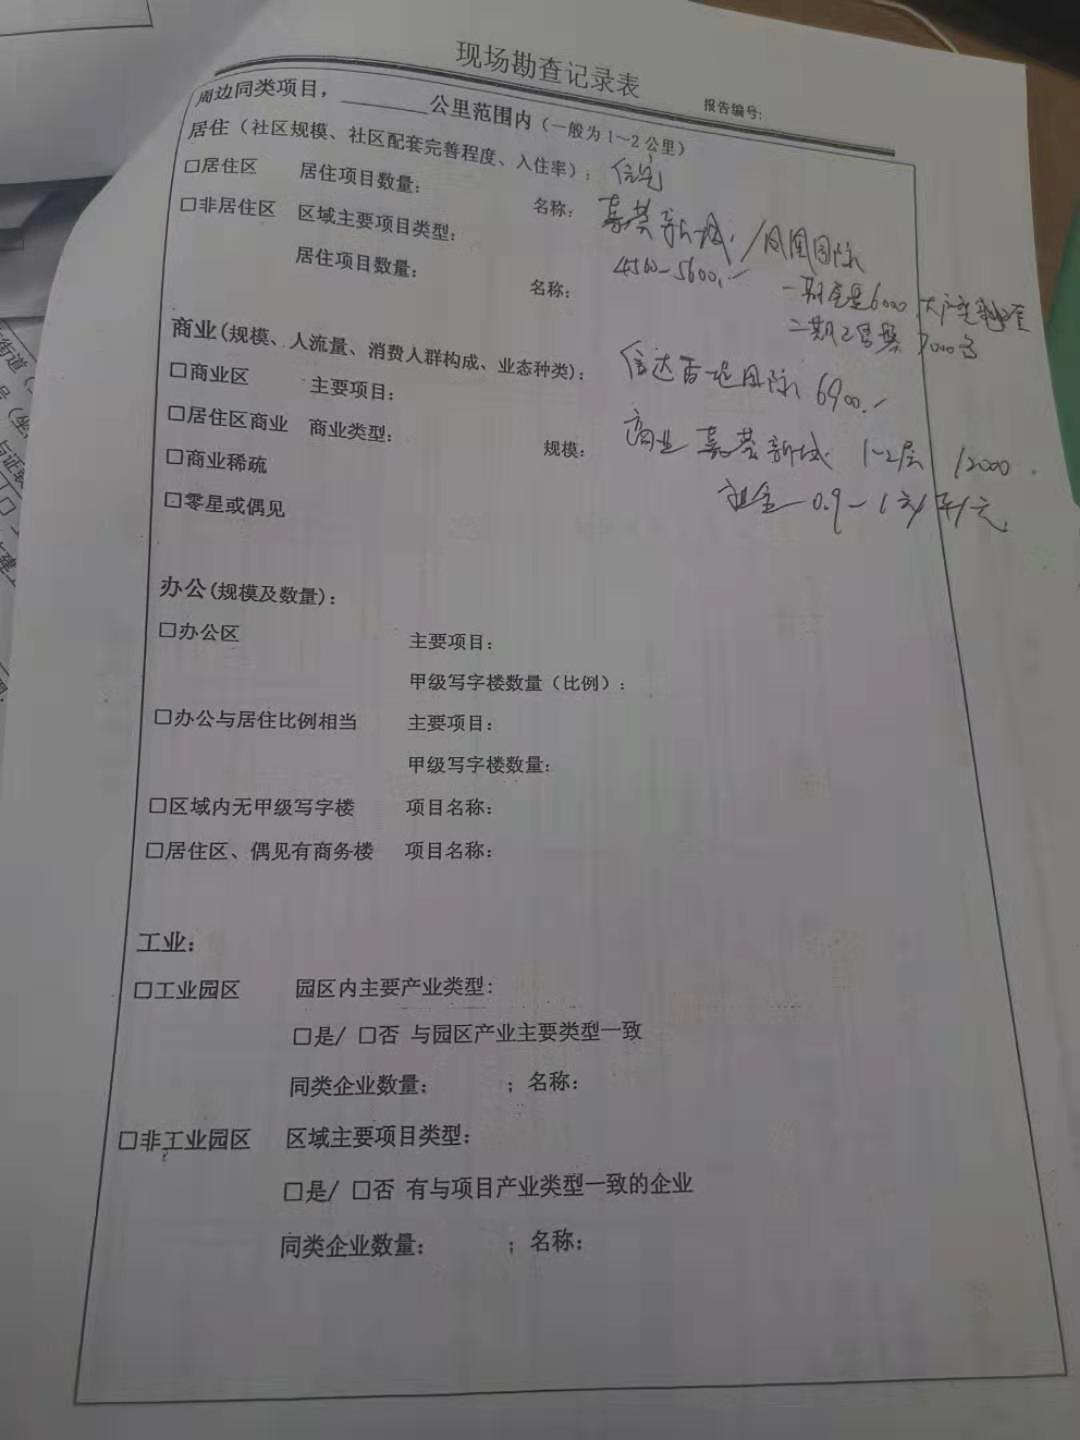 现场勘查记录表
报告编号:
周边同类项目，________公里范围内（一般为1~2公里）
居住（社区规模、社区配套完善程度、入住率）: 住宅
□居住区 居住项目数量: 名称:
新城 / 凤凰国际
□非居住区 区域主要项目类型:
4500-5600.-
居住项目数量: 名称:
一期 6000
二期 7000
商业(规模、人流量、消费人群构成、业态种类):
信达 国际 6900.-
□商业区 主要项目:
□居住区商业 商业类型: 规模:
商业 新城 1~2层 12000
□商业稀疏
租金 0.9-1
□零星或偶见
办公(规模及数量):
□办公区 主要项目:
甲级写字楼数量（比例）:
□办公与居住比例相当 主要项目:
甲级写字楼数量:
□区域内无甲级写字楼 项目名称:
□居住区、偶见有商务楼 项目名称:
工业:
□工业园区 园区内主要产业类型:
□是/ □否 与园区产业主要类型一致
同类企业数量: ；名称:
□非工业园区 区域主要项目类型:
□是/ □否 有与项目产业类型一致的企业
同类企业数量: ；名称:
街道